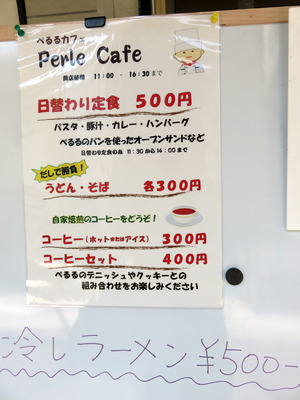 ぺるるカフェ
Perle Cafe
開店時間 11:00 - 16:30まで
日替わり定食 500円
パスタ・豚汁・カレー・ハンバーグ
ぺるるのパンを使ったオープンサンドなど
日替わり定食のみ 11:30から14:00まで
だしで勝負!
うどん・そば 各300円
自家焙煎のコーヒーをどうぞ!
コーヒー(ホットまたはアイス) 300円
コーヒーセット 400円
ぺるるのデニッシュやクッキーとの
組み合わせをお楽しみください
冷しラーメン ¥500-